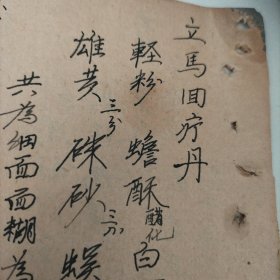 立馬回疗丹
軽粉 蟾酥醋化 白
雄黄三分 硃砂三分
共為细面面糊為